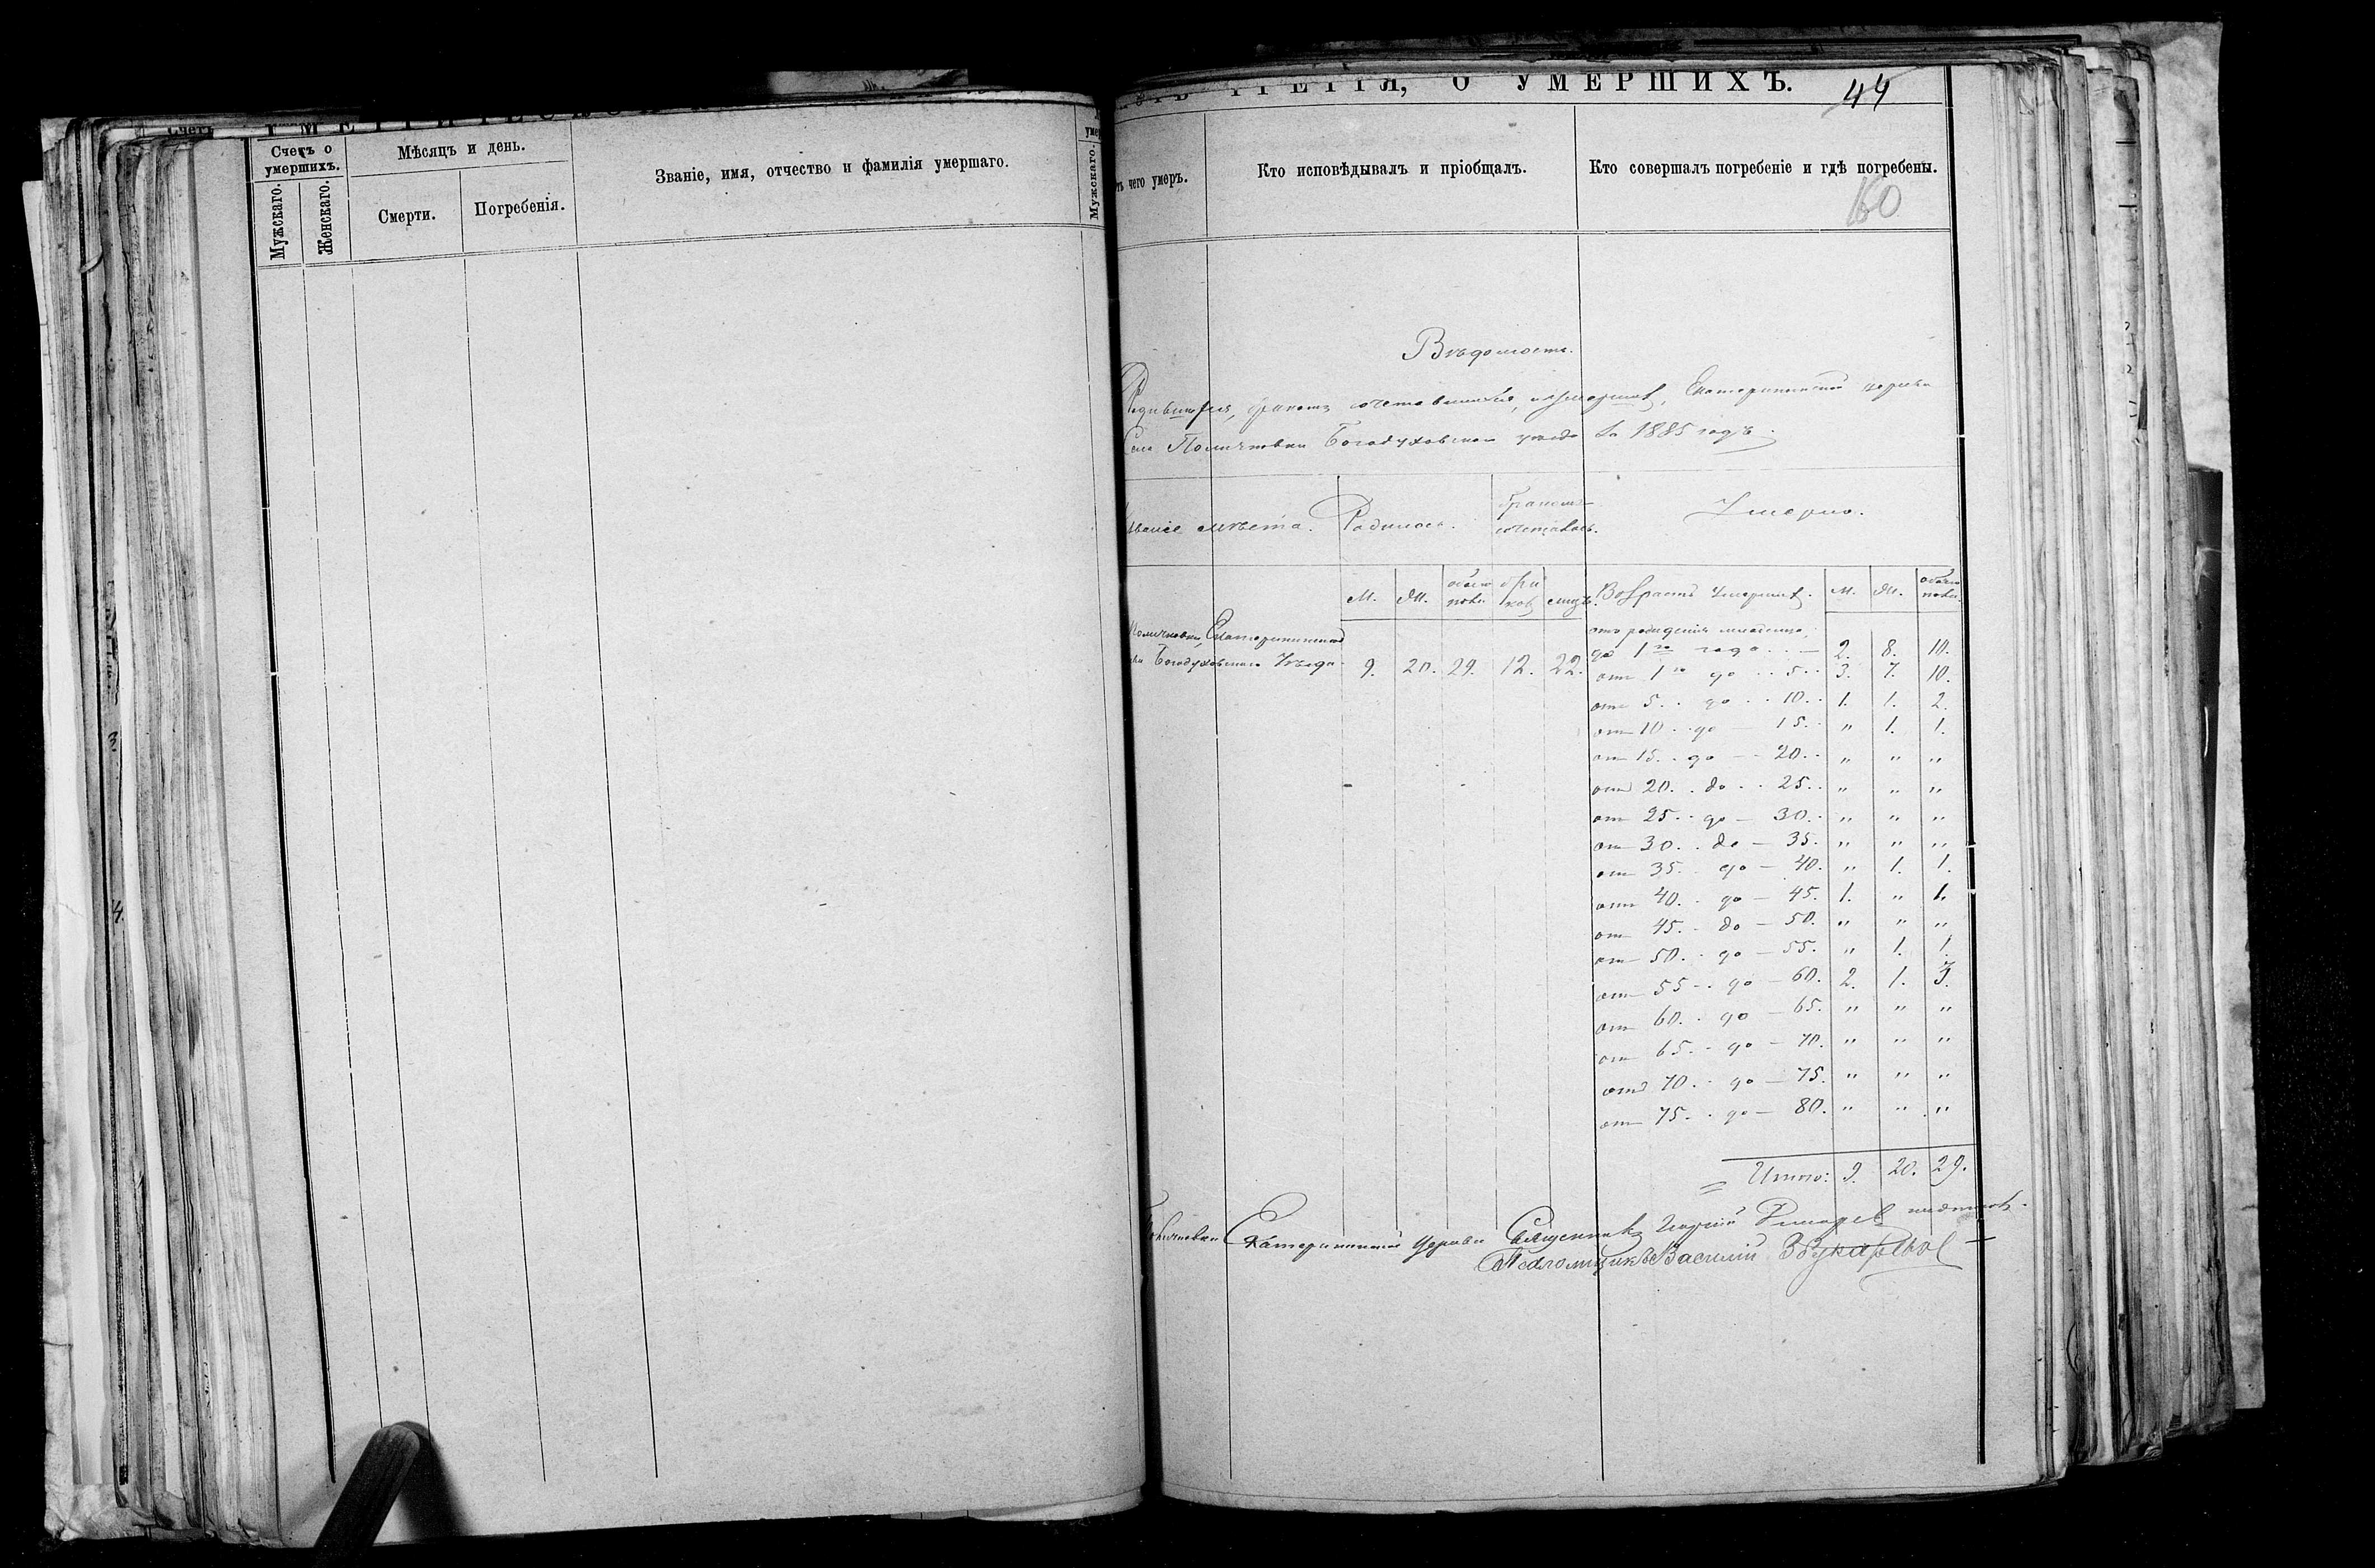 Счетъ о умершихъ.
Мѣсяцъ и день.
Званіе, имя, отчество и фамилія умершаго.
Мужскаго.
Женскаго.
Смерти.
Погребенія.
Мужскаго.
О УМЕРШИХЪ.
44
чего умеръ.
Кто исповѣдывалъ и пріобщалъ.
Кто совершалъ погребеніе и гдѣ погребены.
160
Вѣдомость.
Родившихся, бракомъ сочетавшихся, Екатерининской церкви
Села Богодуховскаго уѣзда за 1885 годъ.
мѣста. Родилось. Бракомъ сочеталось. Умерло.
М. Ж. обоего пола браковъ лицъ. Возрастъ умершихъ. М. Ж. обоего пола.
Екатерининской
Богодуховскаго Уѣзда 9. 20. 29. 12. 22.
отъ рожденія
до 1 го года 2. 8. 10.
отъ 1 го до 5 3. 7. 10.
отъ 5 до 10 1. 1. 2.
отъ 10 до 15 " 1. 1.
отъ 15 до 20 " " "
отъ 20 до 25 " " "
отъ 25 до 30 " " "
отъ 30 до 35 " " "
отъ 35 до 40 " 1. 1.
отъ 40 до 45 1. " 1.
отъ 45 до 50 " " "
отъ 50 до 55 " 1. 1.
отъ 55 до 60 2. 1. 3.
отъ 60 до 65 " " "
отъ 65 до 70 " " "
отъ 70 до 75 " " "
отъ 75 до 80 " " "
Итого: 9. 20. 29.
Екатерининской Церкви Священникъ
Псаломщикъ Василий